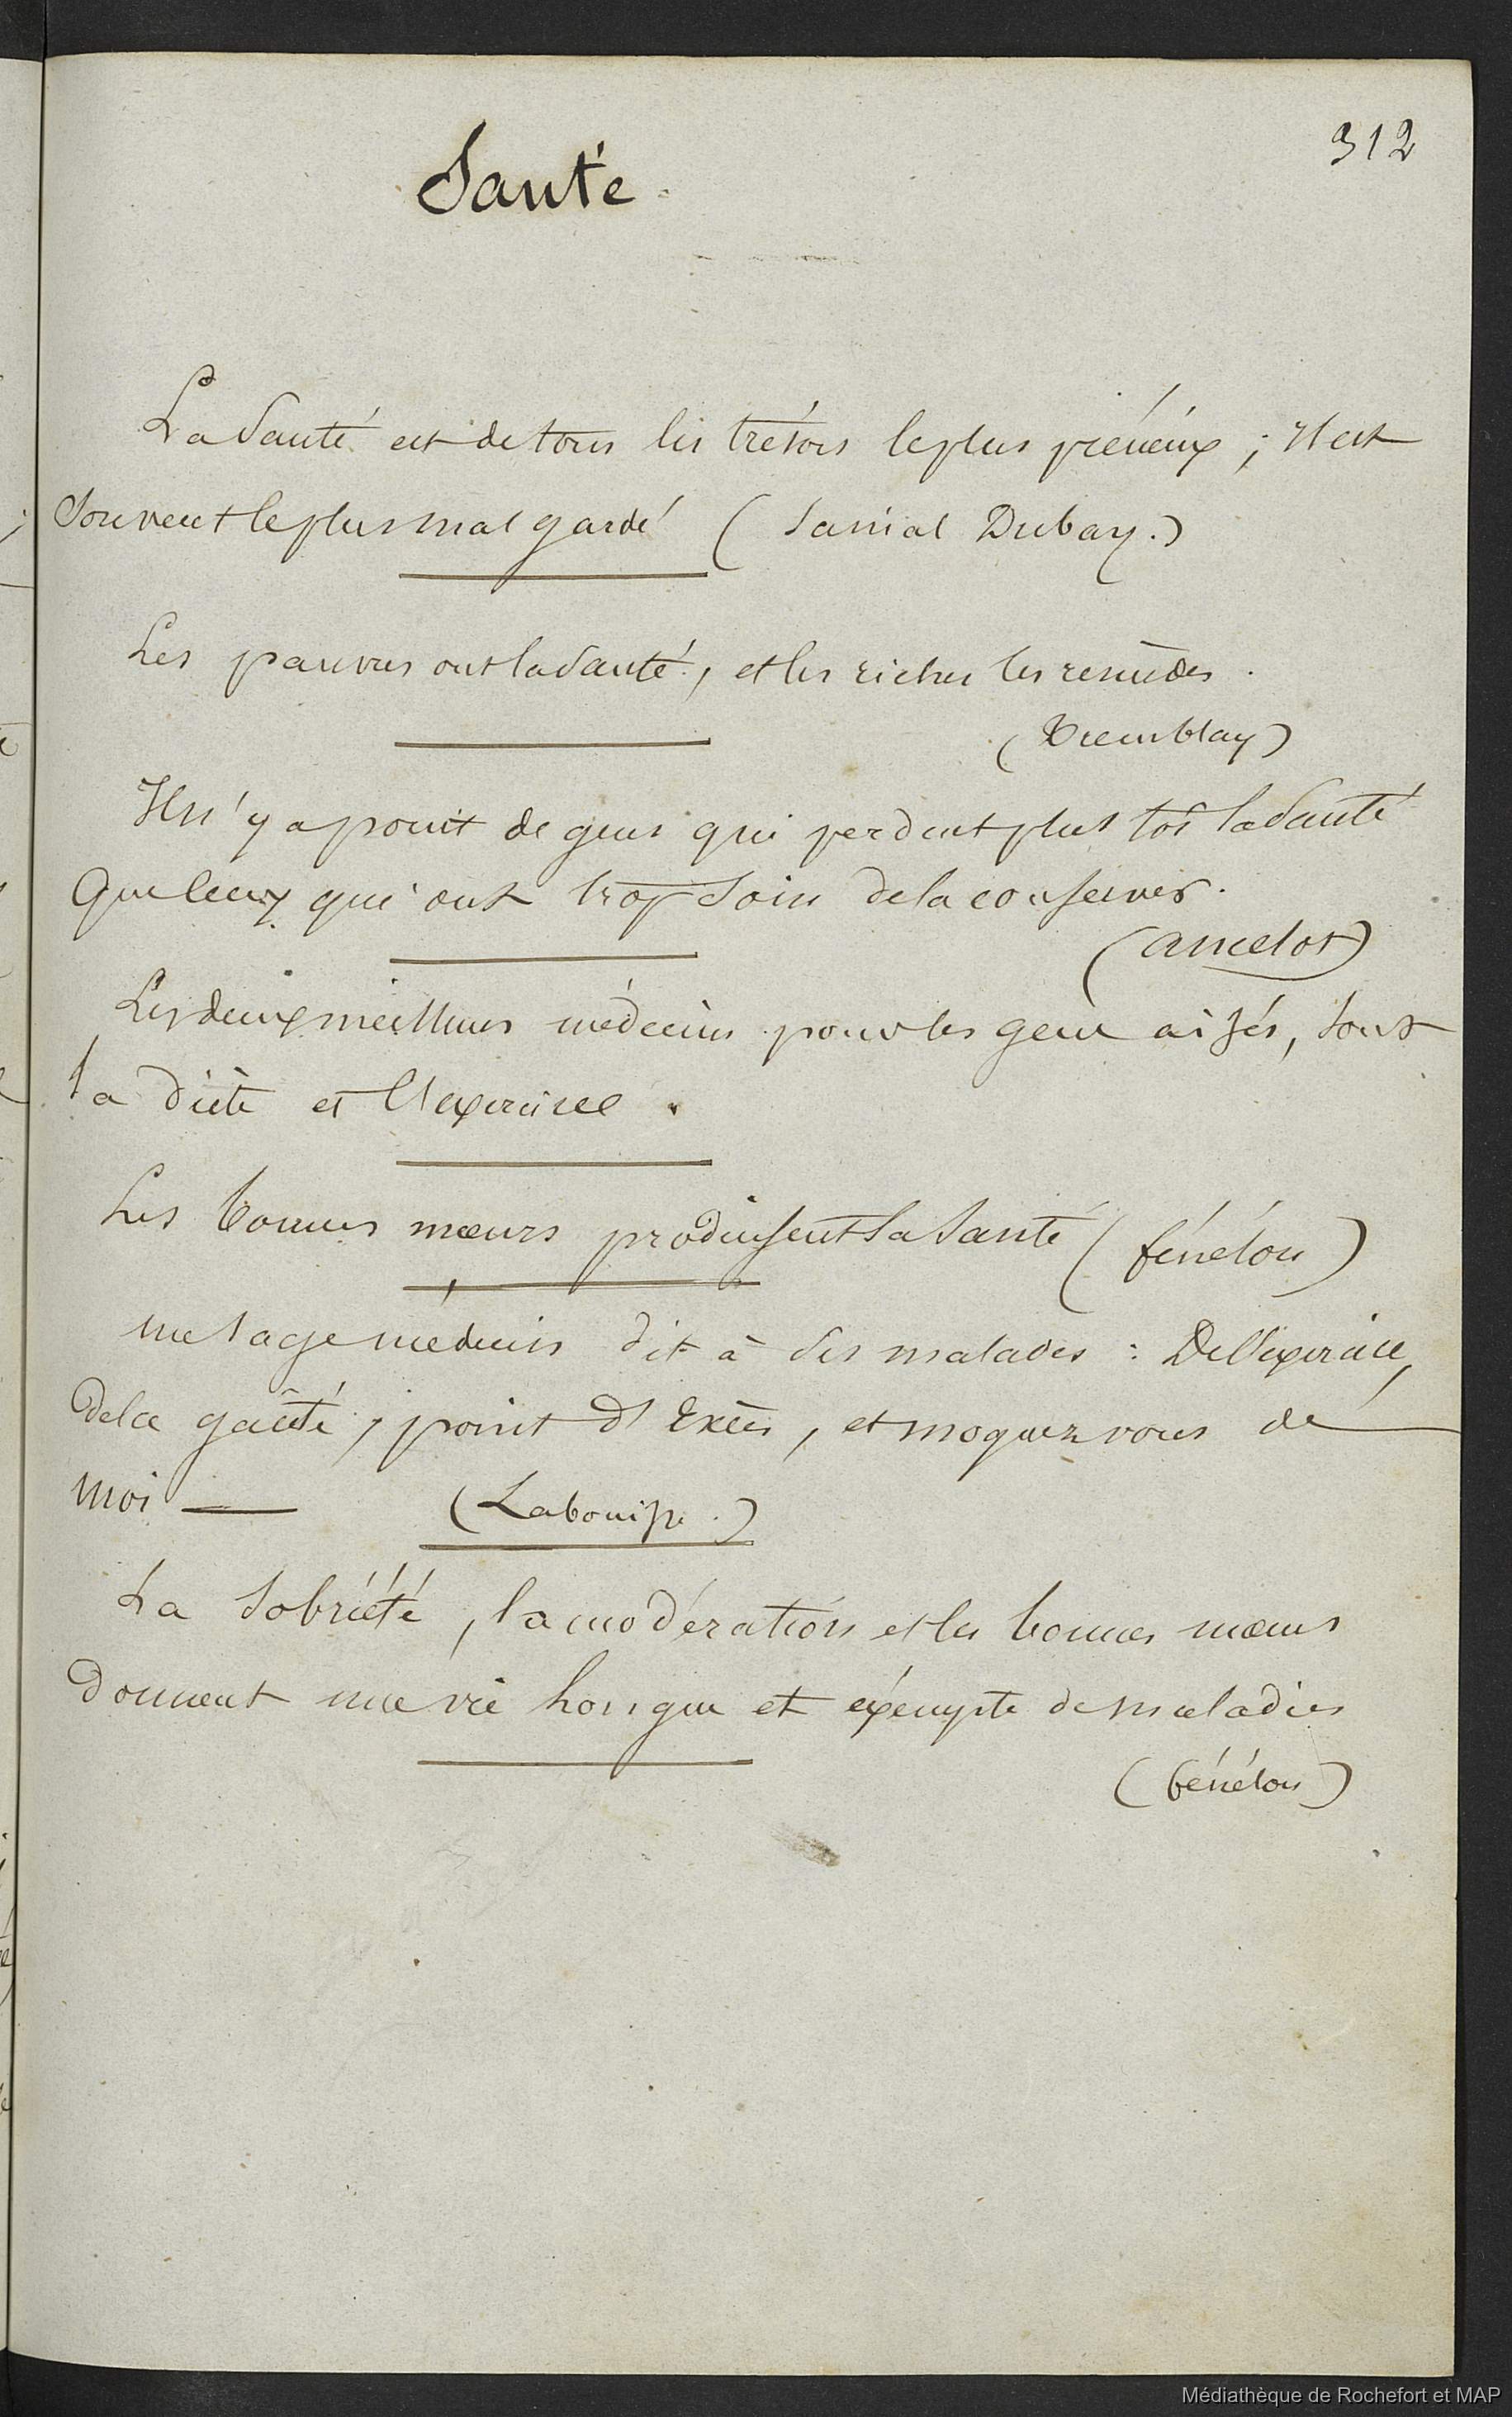 312
Santé
La Santé est de tous les trésors le plus précieux ; Il est
Souvent le plus mal gardé ( Sanial Dubay. )
Les pauvres ont la Santé, et les riches les remèdes.
( Tremblay )
Il n'y a point de gens qui perdent plus tôt la Santé
Que ceux qui ont trop Soin de la conserver.
( Ancelot )
Les deux meilleurs médecins pour les gens aisés, Sont
la diète et l'exercice.
Les bonnes mœurs produisent la Santé ( fénélon )
un Sage médecin dit à Ses malades : De l'exercice,
De la gaîté, point d'Excès, et moquez vous de
moi — ( Labouïsse. )
La Sobriété, la modération et les bonnes mœurs
Donnent une vie longue et éxempte de maladies
( fénélon )
Médiathèque de Rochefort et MAP